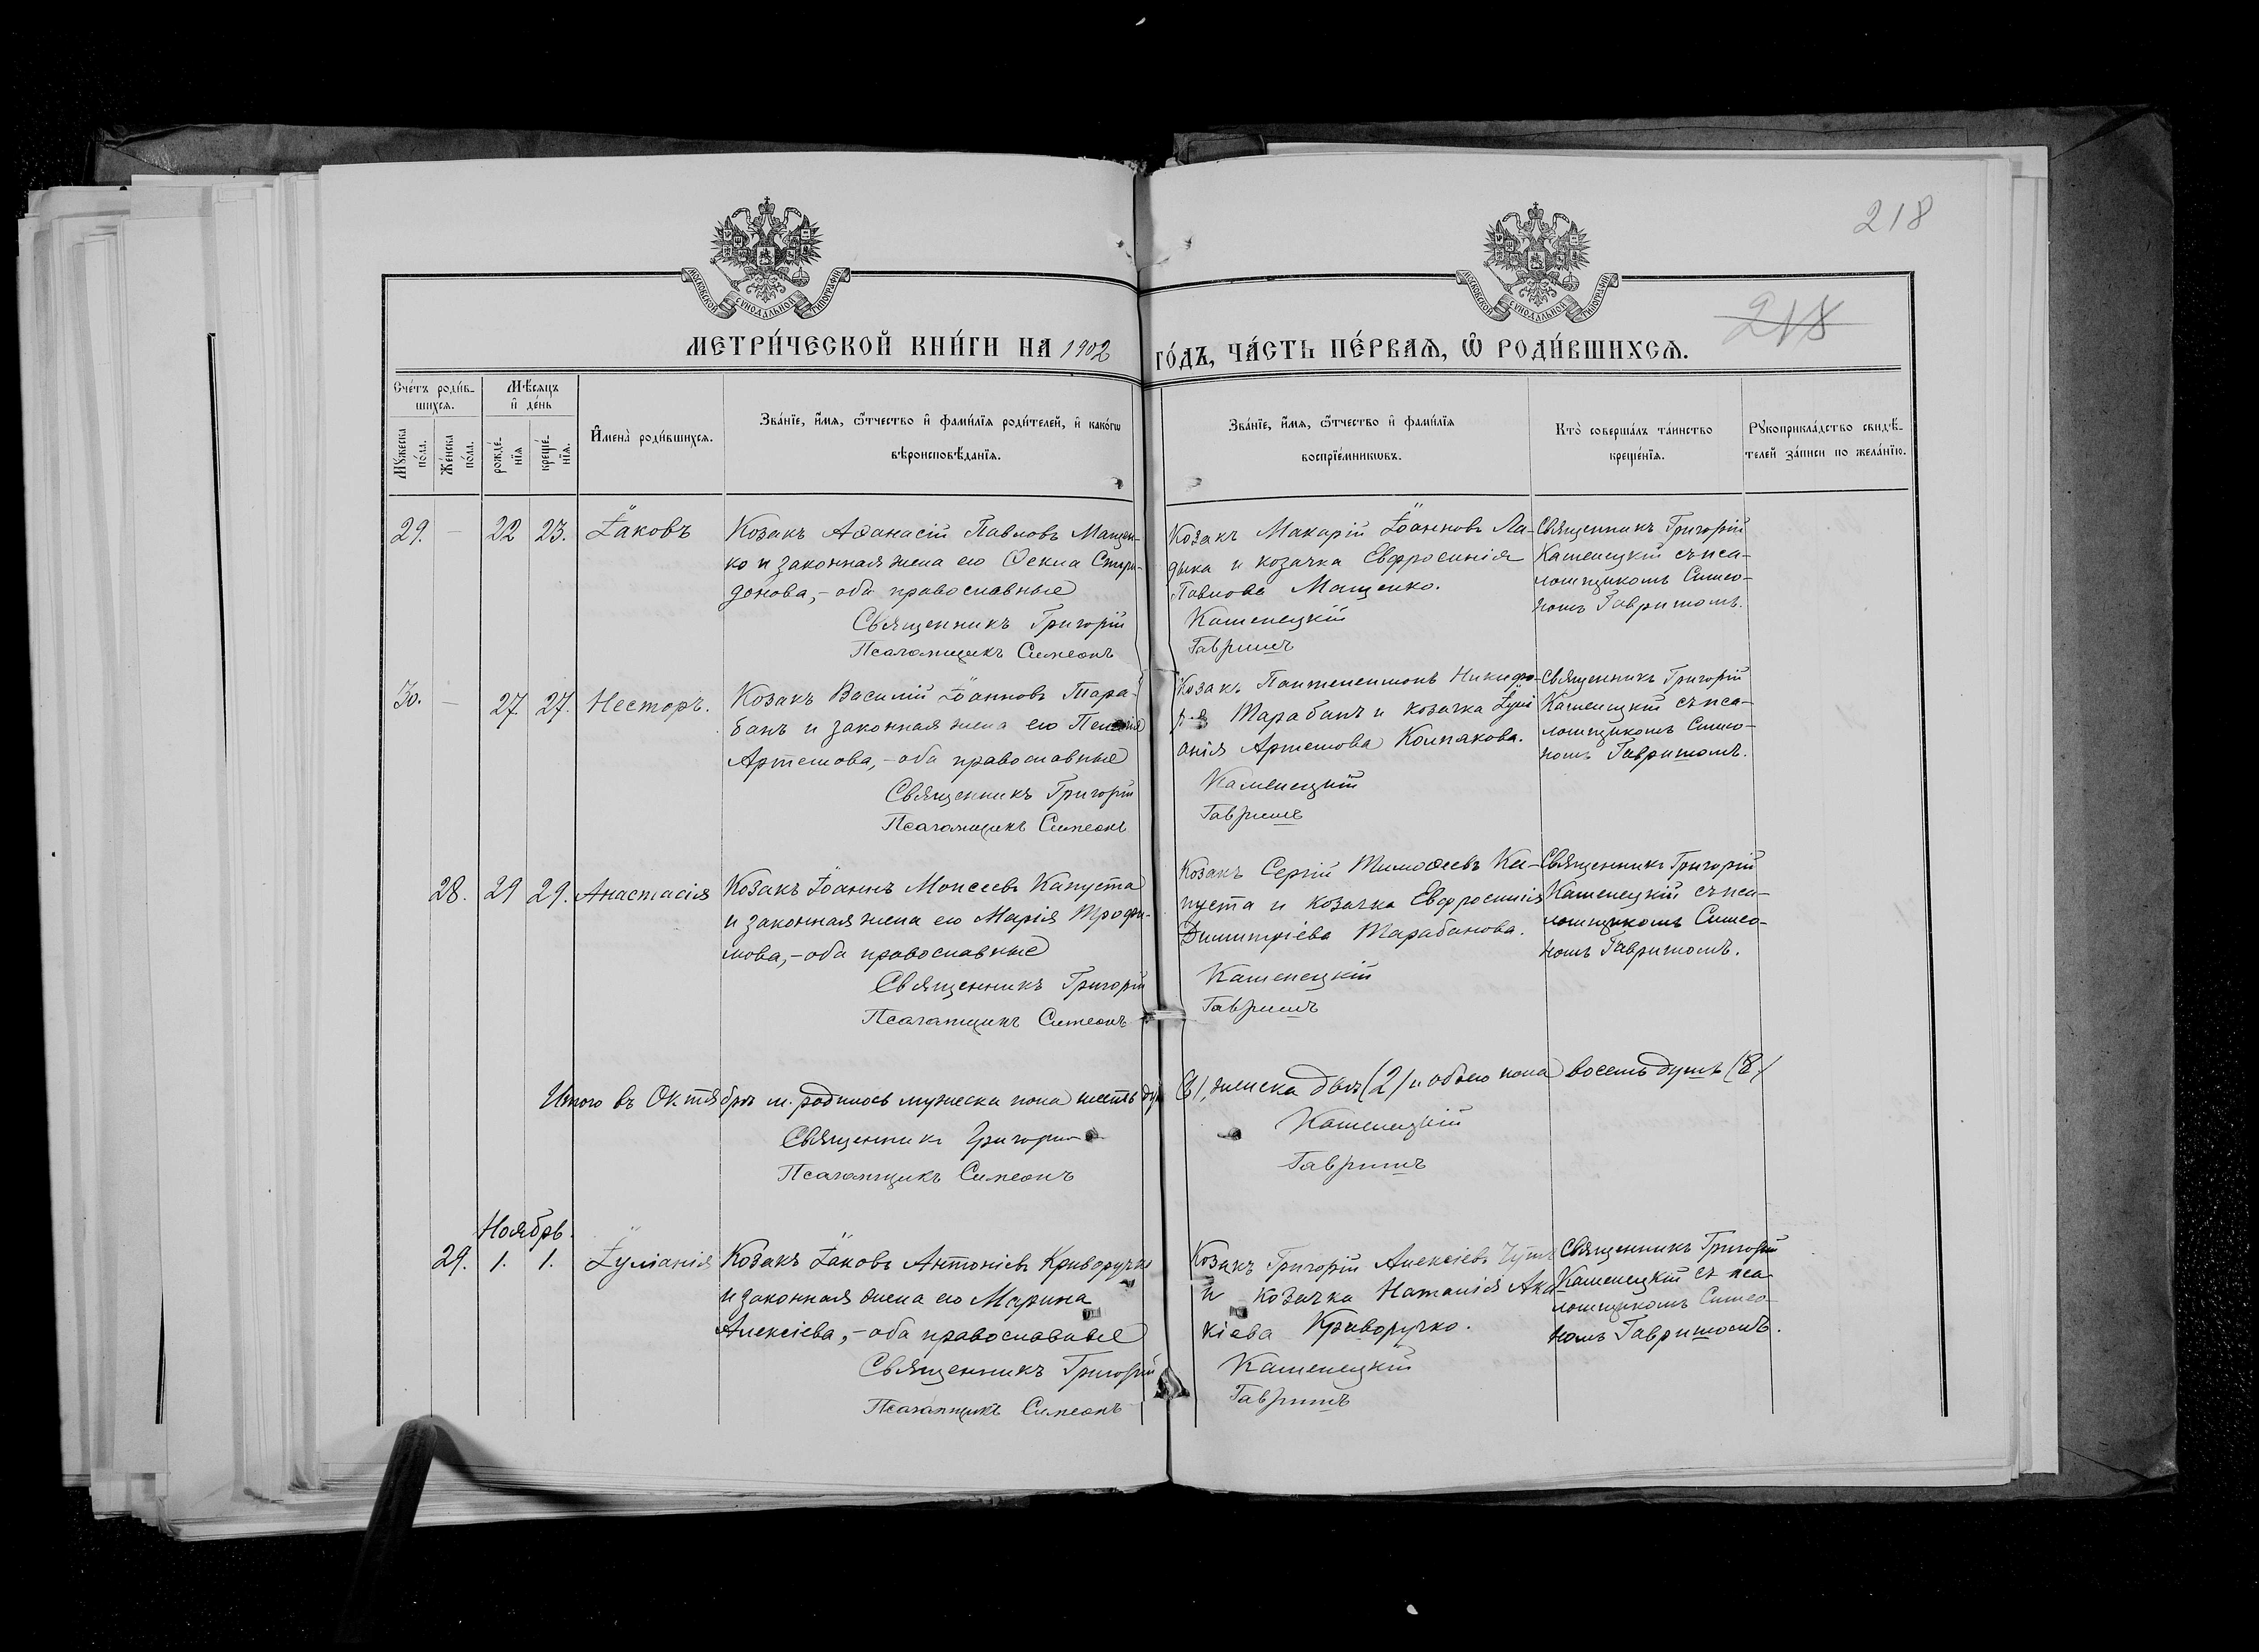 218
МОСКОВСКОЙ СѴНОДАЛЬНОЙ ТИПОГРАФІИ
МОСКОВСКОЙ СѴНОДАЛЬНОЙ ТИПОГРАФІИ
218
МЕТРИ́ЧЕСКОЙ КНИ́ГИ НА 1902 ГО́ДЪ, ЧА́СТЬ ПЕ́РВАѦ, Ѡ РОДИ́ВШИХСѦ.
Сче́тъ роди́в-
шихсѧ.
Мѣ́сѧцъ
и҆ де́нь
Мꙋ́жеска
по́ла.
Же́нска
по́ла.
рожде́-
нїѧ
креще́-
нїѧ.
И҆мена̀ роди́вшихсѧ.
Зва́нїе, и҆́мѧ, ѻ҆́тчество и҆ фами́лїѧ роди́телей, и҆ како́гѡ
вѣроисповѣ́данїѧ.
Зва́нїе, и҆́мѧ, ѻ҆́тчество и҆ фами́лїѧ
воспрїе́мникѡвъ.
Кто̀ соверша́лъ та́инство
креще́нїѧ.
Рꙋкоприкла́дство свидѣ́-
телей за́писи по жела́нїю.
29. — 22 23. Іаковъ
Козакъ Аѳанасій Павловъ Мащен-
ко и законная жена его Ѳекла Спири-
донова,- оба православные
Священникъ Григорій
Псаломщикъ Симеонъ
Козакъ Макарій Іоанновъ Ла-
дыка и козачка Евфросинія
Павлова Мащенко.
Каменецкій
Гавришъ
Священникъ Григорій
Каменецкій съ пса-
ломщикомъ Симео-
номъ Гавришомъ.
30. — 27 27. Несторъ.
Козакъ Василій Іоанновъ Тара-
банъ и законная жена его
Артемова,- оба православные
Священникъ Григорій
Псаломщикъ Симеонъ
Козакъ Пантелеимонъ Никифо-
ровъ Тарабанъ и козачка Іулі
анія Артемова Колпакова.
Каменецкій
Гавришъ
Священникъ Григорій
Каменецкій съ пса-
ломщикомъ Симео-
номъ Гавришомъ.
28. 29 29. Анастасія
Козакъ Іоаннъ Моисеевъ Капуста
и законная жена его Марія Трофи-
мова,- оба православные
Священникъ Григорій
Псаломщикъ Симеонъ
Козакъ Сергій Тимоѳеевъ Ка-
пуста и козачка Евфросинія
Димитріева Тарабанова.
Каменецкій
Гавришъ
Священникъ Григорій
Каменецкій съ пса-
ломщикомъ Симео-
номъ Гавришомъ.
Итого въ Октябрѣ м. родилось мужеска пола шесть душ (6), женска двѣ (2) и обоего пола восемь душъ (8)
Священникъ Григорій
Псаломщикъ Симеонъ
Каменецкій
Гавришъ
Ноябрь.
29. 1. 1. Іуліанія
Козакъ Іаковъ Антоніевъ Криворучко
и законная жена его Марина
Алексіева,- оба православные
Священникъ Григорій
Псаломщикъ Симеонъ
Козакъ Григорій Алексіевъ
и козачка Наталія Ака
кіева Криворучко.
Каменецкій
Гавришъ
Священникъ Григорій
Каменецкій съ пса
ломщикомъ Симео-
номъ Гавришомъ.